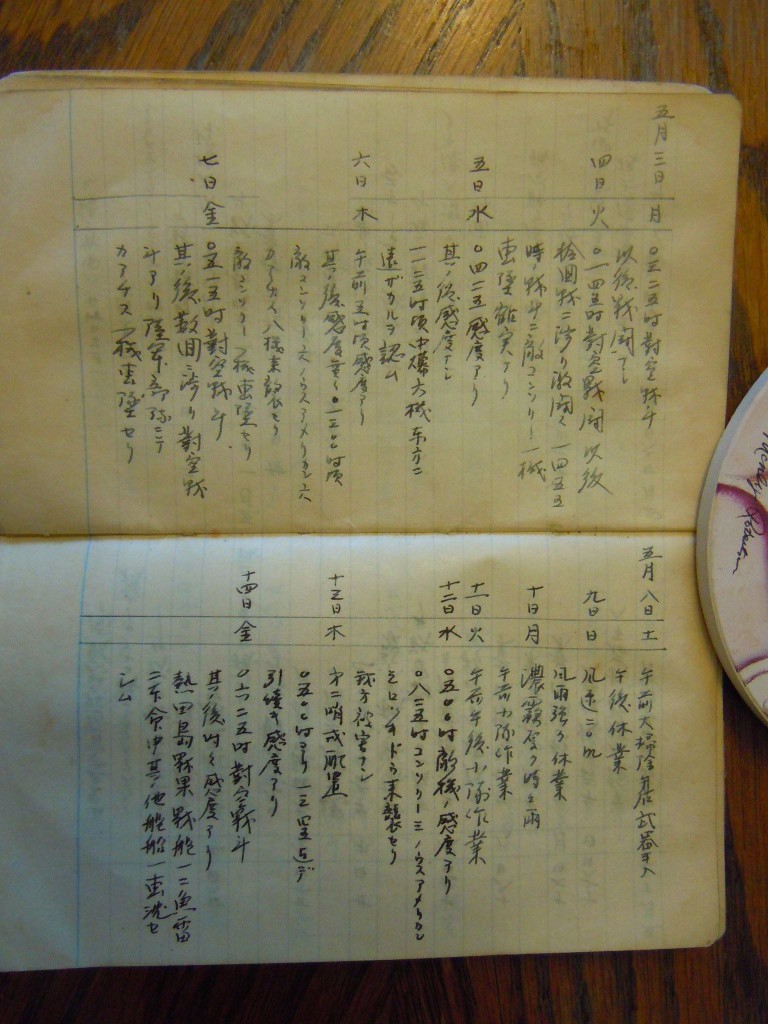 五月三日 月 〇三二五時對空戦斗
以後戦闘ナシ
四日 火 〇一四五時對空戦闘以後
拾回ニ渉リ激闘ス 一四五五
時 戦斗ニ敵コンソリー一機
撃墜確実ナリ
五日 水 〇四二五感度アリ
其ノ後感度ナシ
一一二五時頃中爆六機東方ニ
遠ザカルヲ認ム
六日 木 午前五時頃感度アリ
其ノ後感度 〇一三〇〇時頃
敵コンソリー六ノウスアメリカン六
カアチス八機来襲セリ
敵コンソリー一機撃墜セリ
七日 金 〇五一五時對空戦斗
其ノ後数回ニ渉リ對空戦
斗アリ陸軍部隊ニテ
カアチス一機撃墜セリ
五月八日 土 午前大掃除 兵器手入
午後休業
九日 日 風速二〇m
風雨強ク休業
十日 月 濃霧 時々雨
午前小隊作業
十一日 火 午前午後小隊作業
十二日 水 〇五〇〇時敵機ノ感度アリ
〇八二五時コンソリー三ノウスアメリカン
ミロッキード 来襲セリ
我方被害ナシ
十三日 木 第二哨戒配置
〇五〇〇時ヨリ一三 迄デ
引続キ感度アリ
十四日 金 〇六二五時對空戦斗
其ノ後時々感度アリ
熱田島戦果 戦艦一ニ魚雷
二本命中其ノ他艦船一撃沈セ
シム